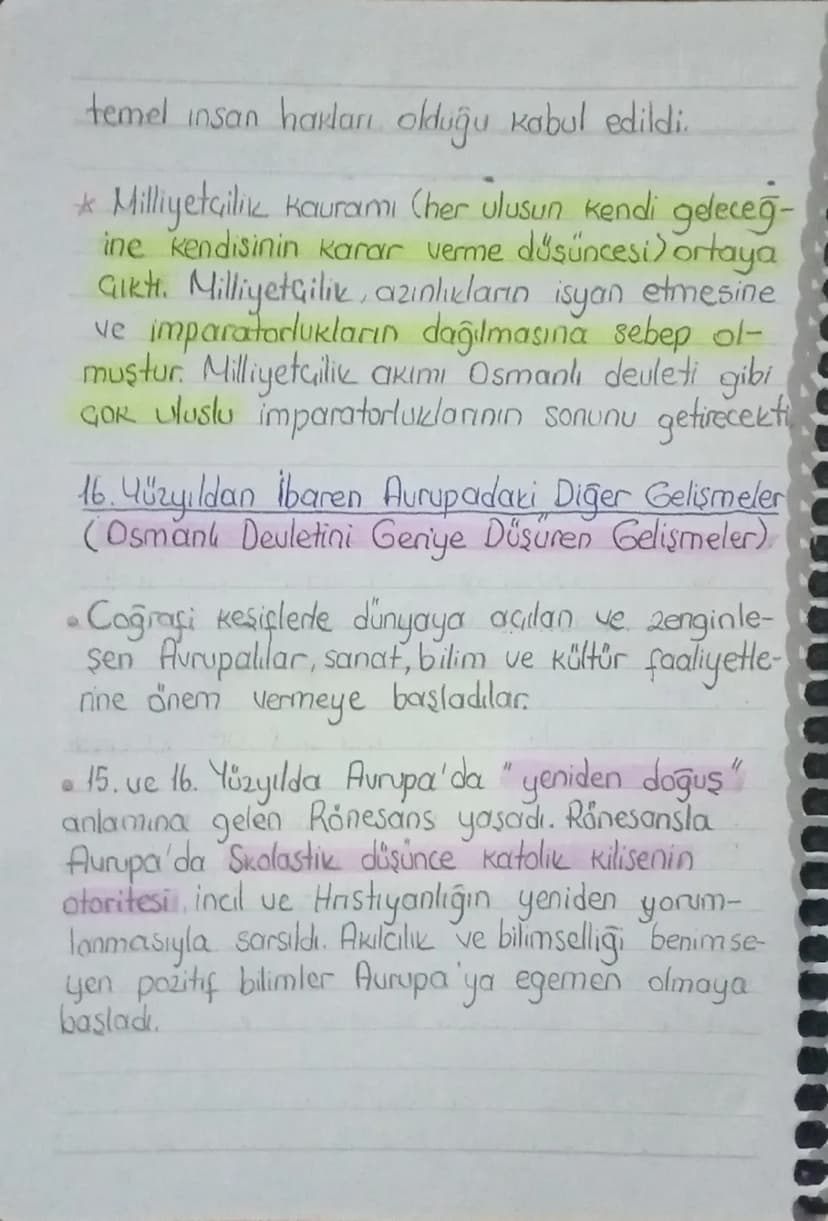 temel insan hakları olduğu kabul edildi.
* Milliyetçilik kavramı (her ulusun kendi geleceğ-
ine kendisinin karar verme düşüncesi) ortaya
çıktı. Milliyetçilik, azınlıkların isyan etmesine
ve imparatorlukların dağılmasına sebep ol-
muştur. Milliyetçilik akımı Osmanlı devleti gibi
çok uluslu imparatorluklarının sonunu getirecekti
16. Yüzyıldan İbaren Avrupadaki Diğer Gelişmeler
(Osmanlı Devletini Geriye Düşüren Gelişmeler)
• Coğrafi keşiflerle dünyaya açılan ve zenginle-
şen Avrupalılar, sanat, bilim ve kültür faaliyetle-
rine önem vermeye başladılar.
• 15. ve 16. Yüzyılda Avrupa'da "yeniden doğuş"
anlamına gelen Rönesans yaşadı. Rönesansla
Avrupa'da Skolastik düşünce katolik kilisenin
otoritesi, incil ve Hristiyanlığın yeniden yorum-
lanmasıyla sarsıldı. Akılcılık ve bilimselliği benimse-
yen pozitif bilimler Avrupa'ya egemen olmaya
başladı.